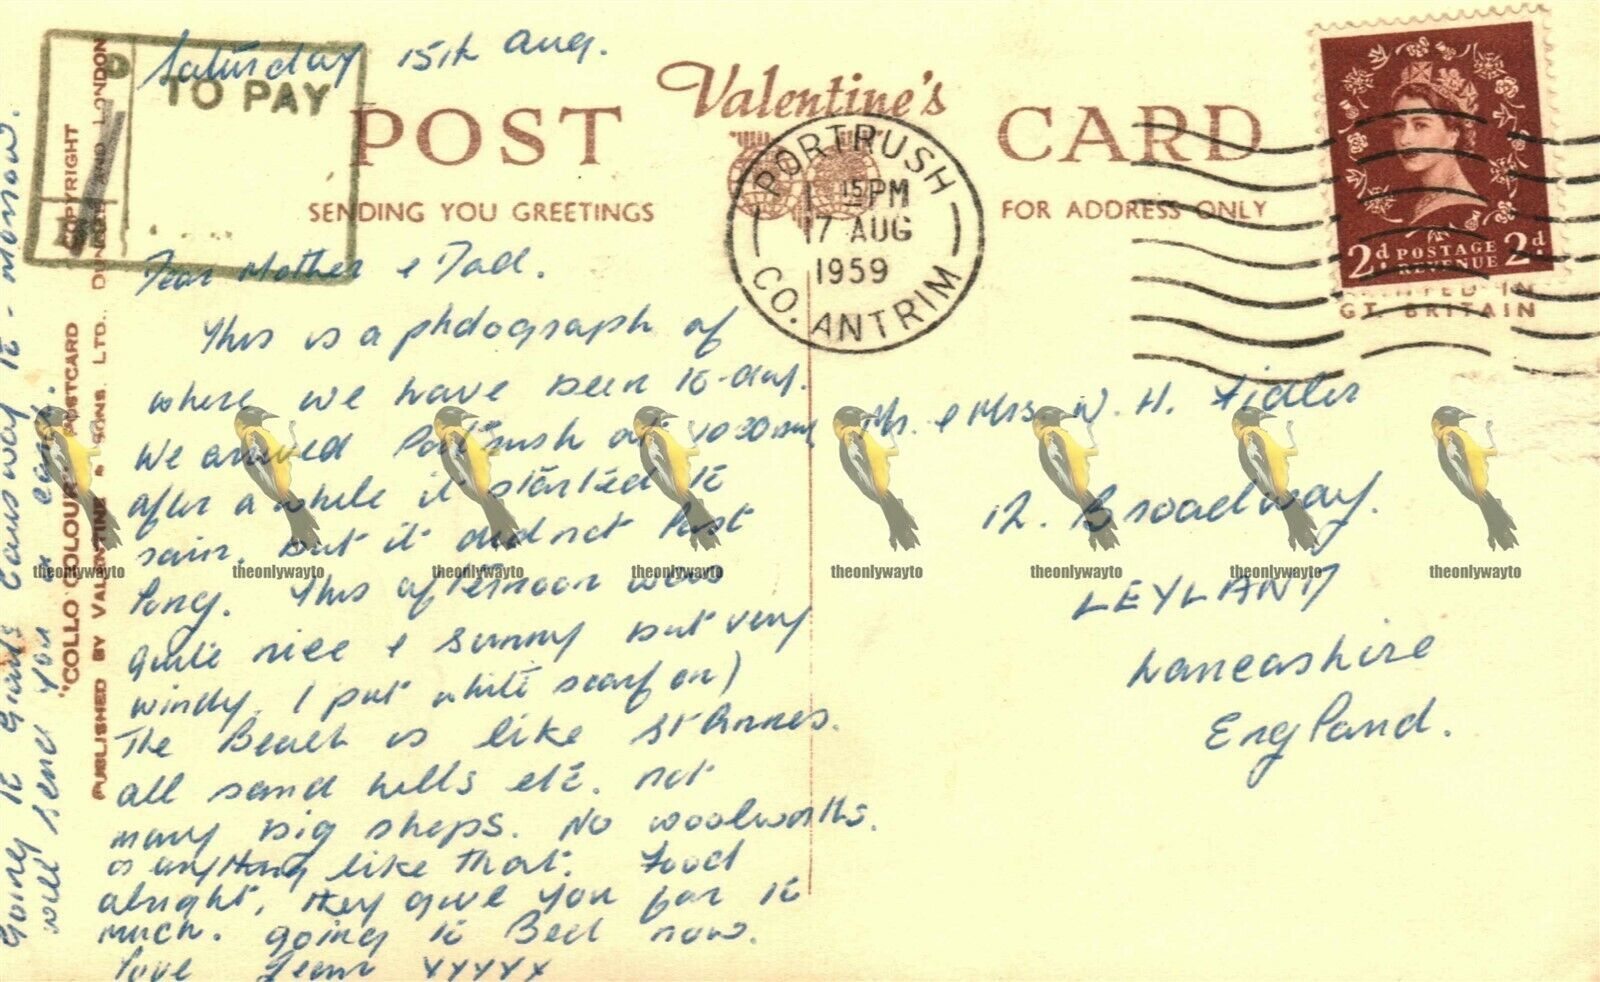 Saturday 15th Aug.
TO PAY
Valentine's
POST CARD
SENDING YOU GREETINGS
FOR ADDRESS ONLY
PORTRUSH
1 15 PM
17 AUG
1959
CO. ANTRIM
2d POSTAGE 2d
REVENUE
PRINTED IN
GT. BRITAIN
Dear Mother & Dad.
This is a photograph of
where we have been to-day.
We arrived Portrush at 10 30 am
after a while it started to
rain, but it did not last
long. This afternoon was
quite nice & sunny but very
windy. I put white scarf on)
The Beach is like St Annes.
all sand hills etc. not
many big shops. No woolworths.
or anything like that. Food
alright, they give you far to
much. going to Bed now.
love Jean xxxxx
Going to Giants Causway to-morrow.
will send you a card.
Mr. & Mrs. W. H. Fidler
12. Broadway.
LEYLAND
Lancashire
England.
COPYRIGHT
"COLLO COLOUR" POSTCARD
PUBLISHED BY VALENTINE & SONS, LTD., DUNDEE AND LONDON
theonlywayto theonlywayto theonlywayto theonlywayto theonlywayto theonlywayto theonlywayto theonlywayto